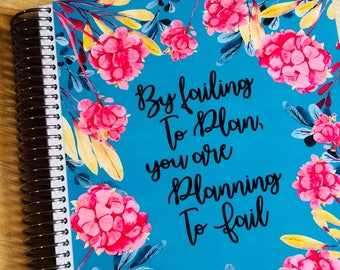 By failing
To Plan,
you are
Planning
To fail